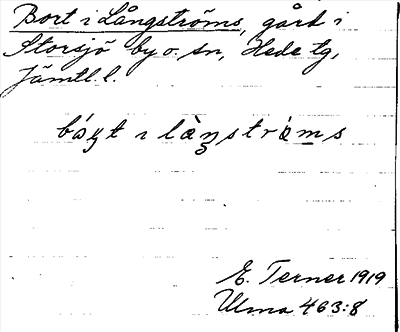 Bort i Långströms, gård i
Storsjö by o. sn, Hede tg,
Jämtl. l.
bóṣt ı làŋstrȯms
E. Terner 1919
Ulma 463:8